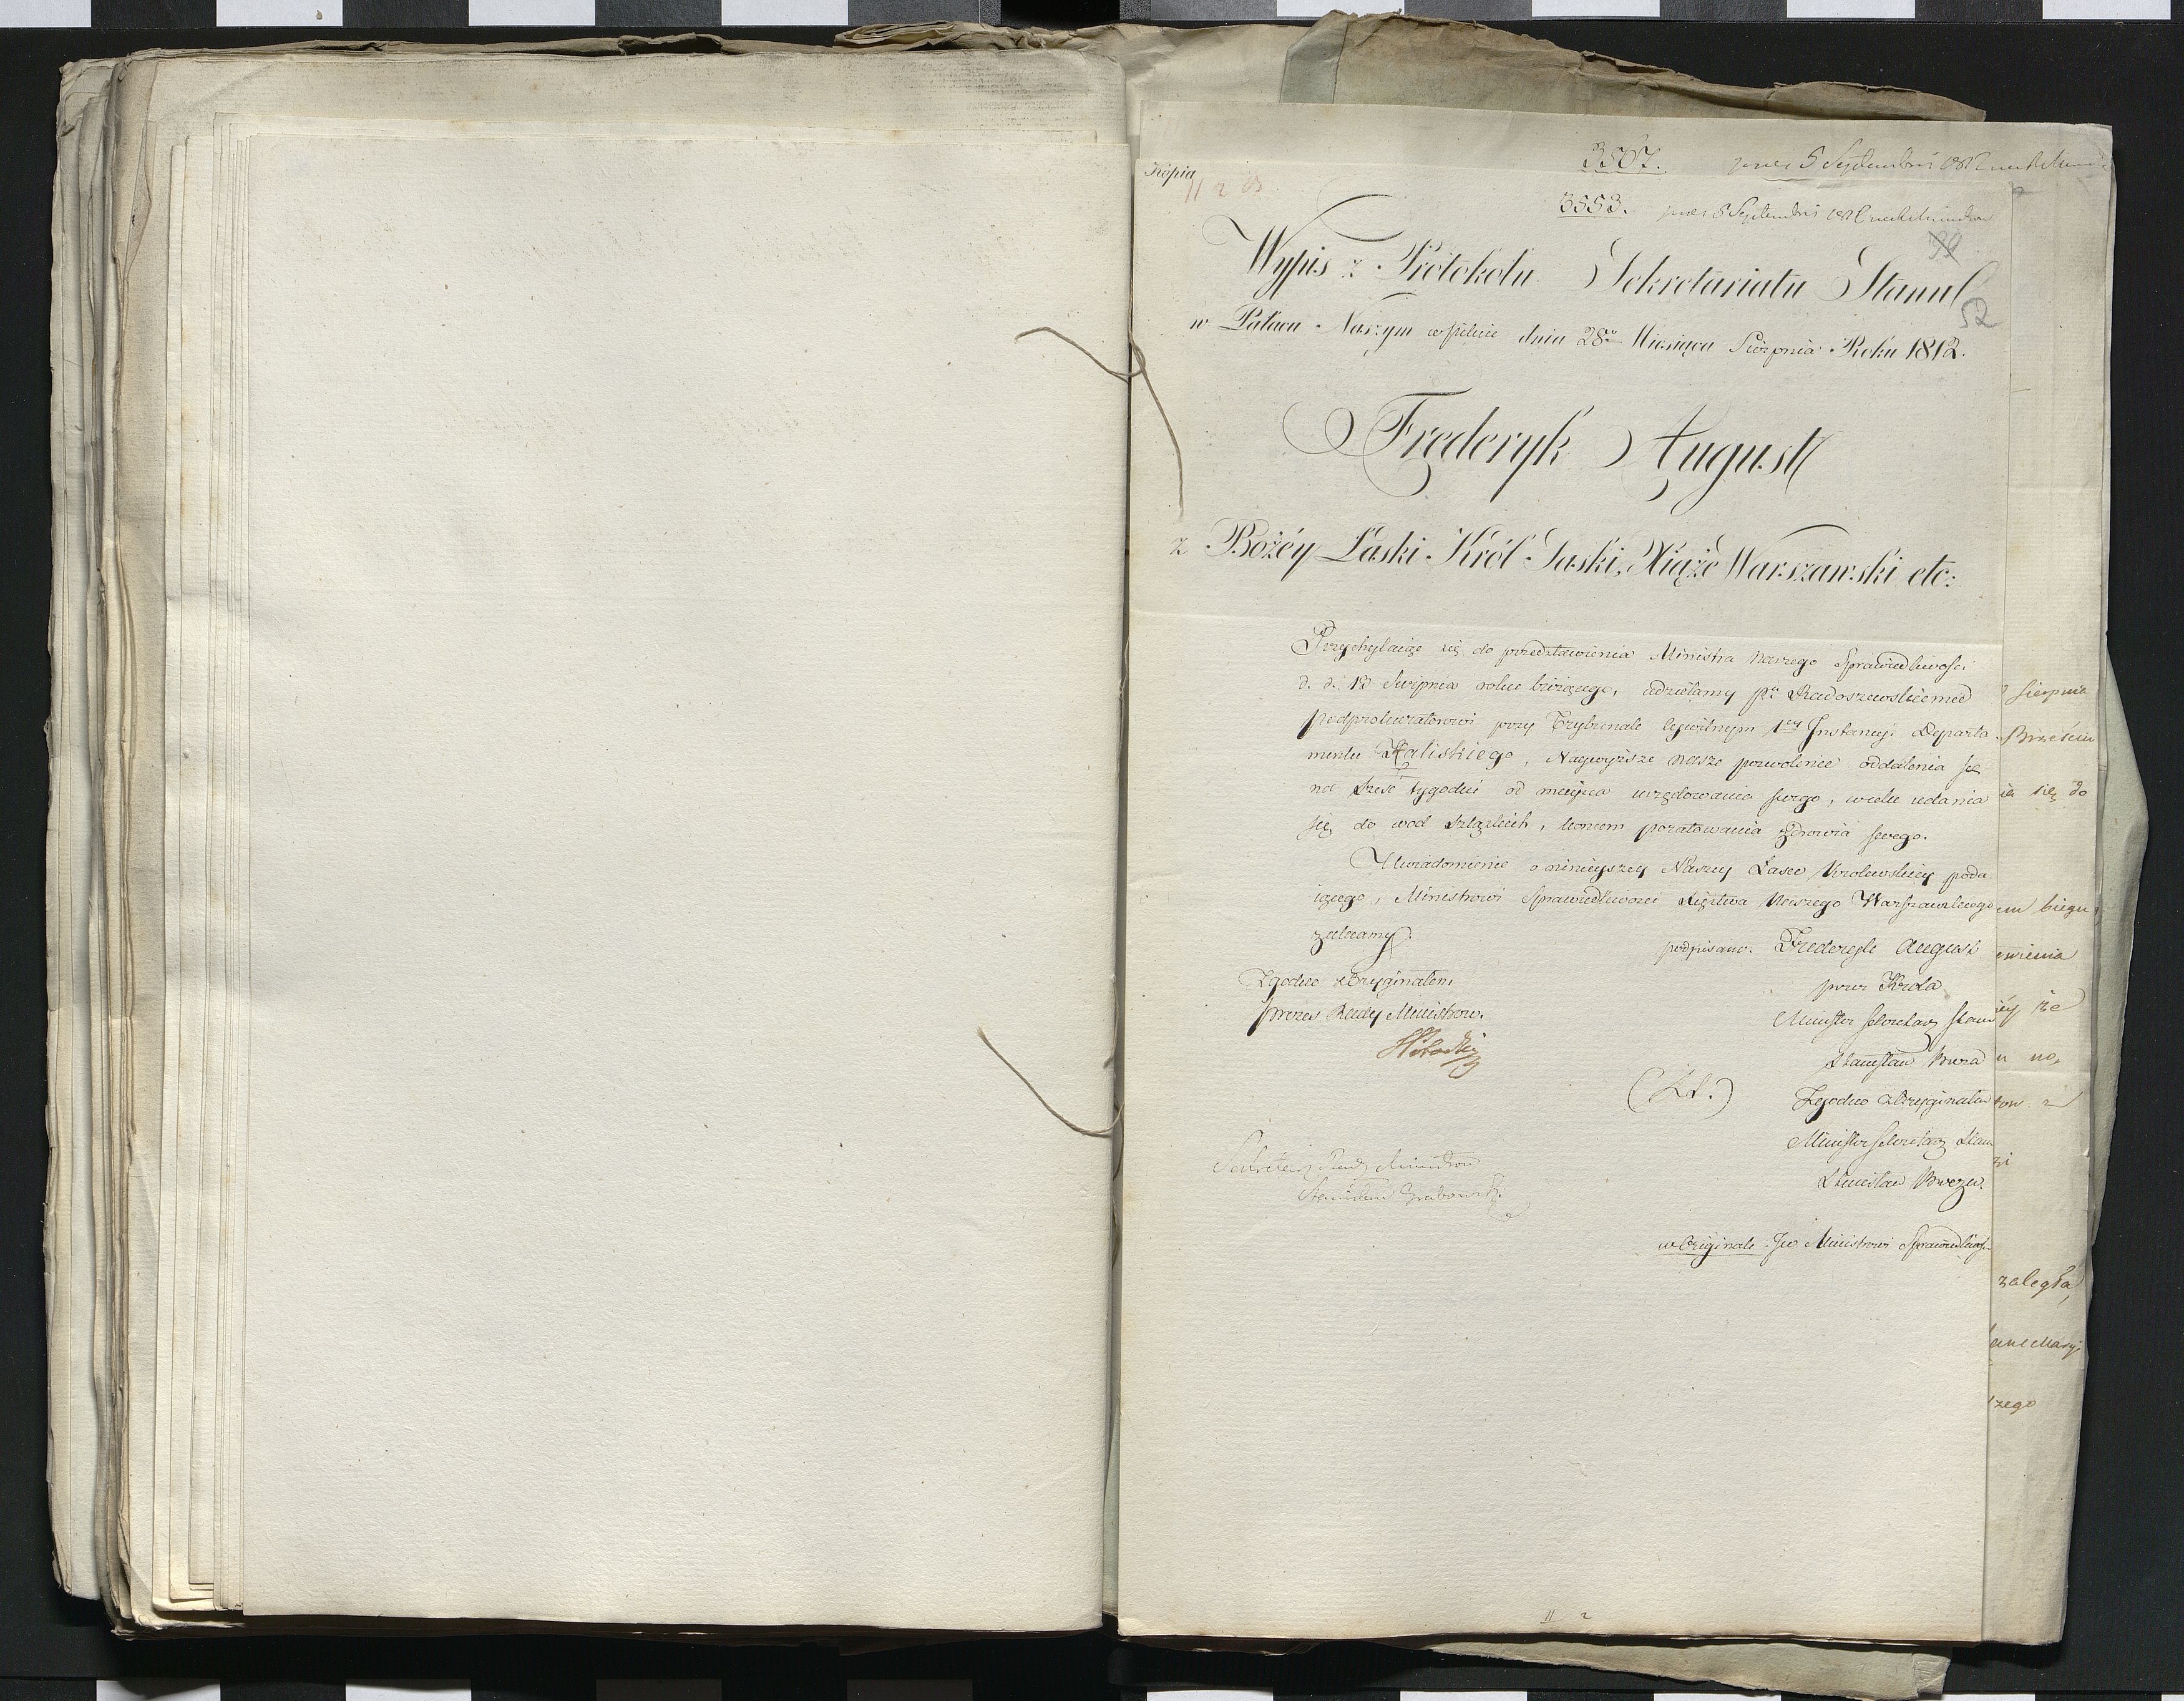 3567. 5 Septembris 1812
Kopia
11 2 83
3553. 5 Septembris 1812
39
Wypis z Protokołu Sekretariatu Stanu
52
w Pałacu Naszym w Pilnic dnia 28go Miesiąca Sierpnia Roku 1812.
Fryderyk August
z Bożéy Łaski Król Saski, Xiąże Warszawski etc:
Przychylaiąc się do przedstawienia Ministra naszego Sprawiedliwości
d. d. 18 Sierpnia roku bieżącego, udzielamy Pu Radoszewskiemu
podprokuratorowi przy Trybunale Cywilnym 1ey Instancyi Departa
mentu Kaliskiego, Naywyższe nasze pozwolenie oddalenia się
na sześć tygodni od mieysca urzędowania swego, w celu udania
się do wod Szląskich, koncem poratowania zdrowia swego.
Uwiadomienie o ninieyszey Naszey Łasce Krolewskiey poda
iącego, Ministrowi Sprawiedliwości Xięstwa Naszego Warszawskiego
zalecamy.
podpisano. Fryderyk August
przez Krola
Minister Sekretarz Stanu
Stanisław Breza
(L.S.)
Zgodno z Oryginałem
Minister Sekretarz Stanu
Stanisław Breza.
Zgodno z Oryginałem
Prezes Rady Ministrow.
Sekretarz Rady Ministrow
Stanisław Grabowski
w Originale Jw Ministrowi Sprawiedliwości
Sierpnia
Brześciu
się do
biegu
zaległa,
II 2